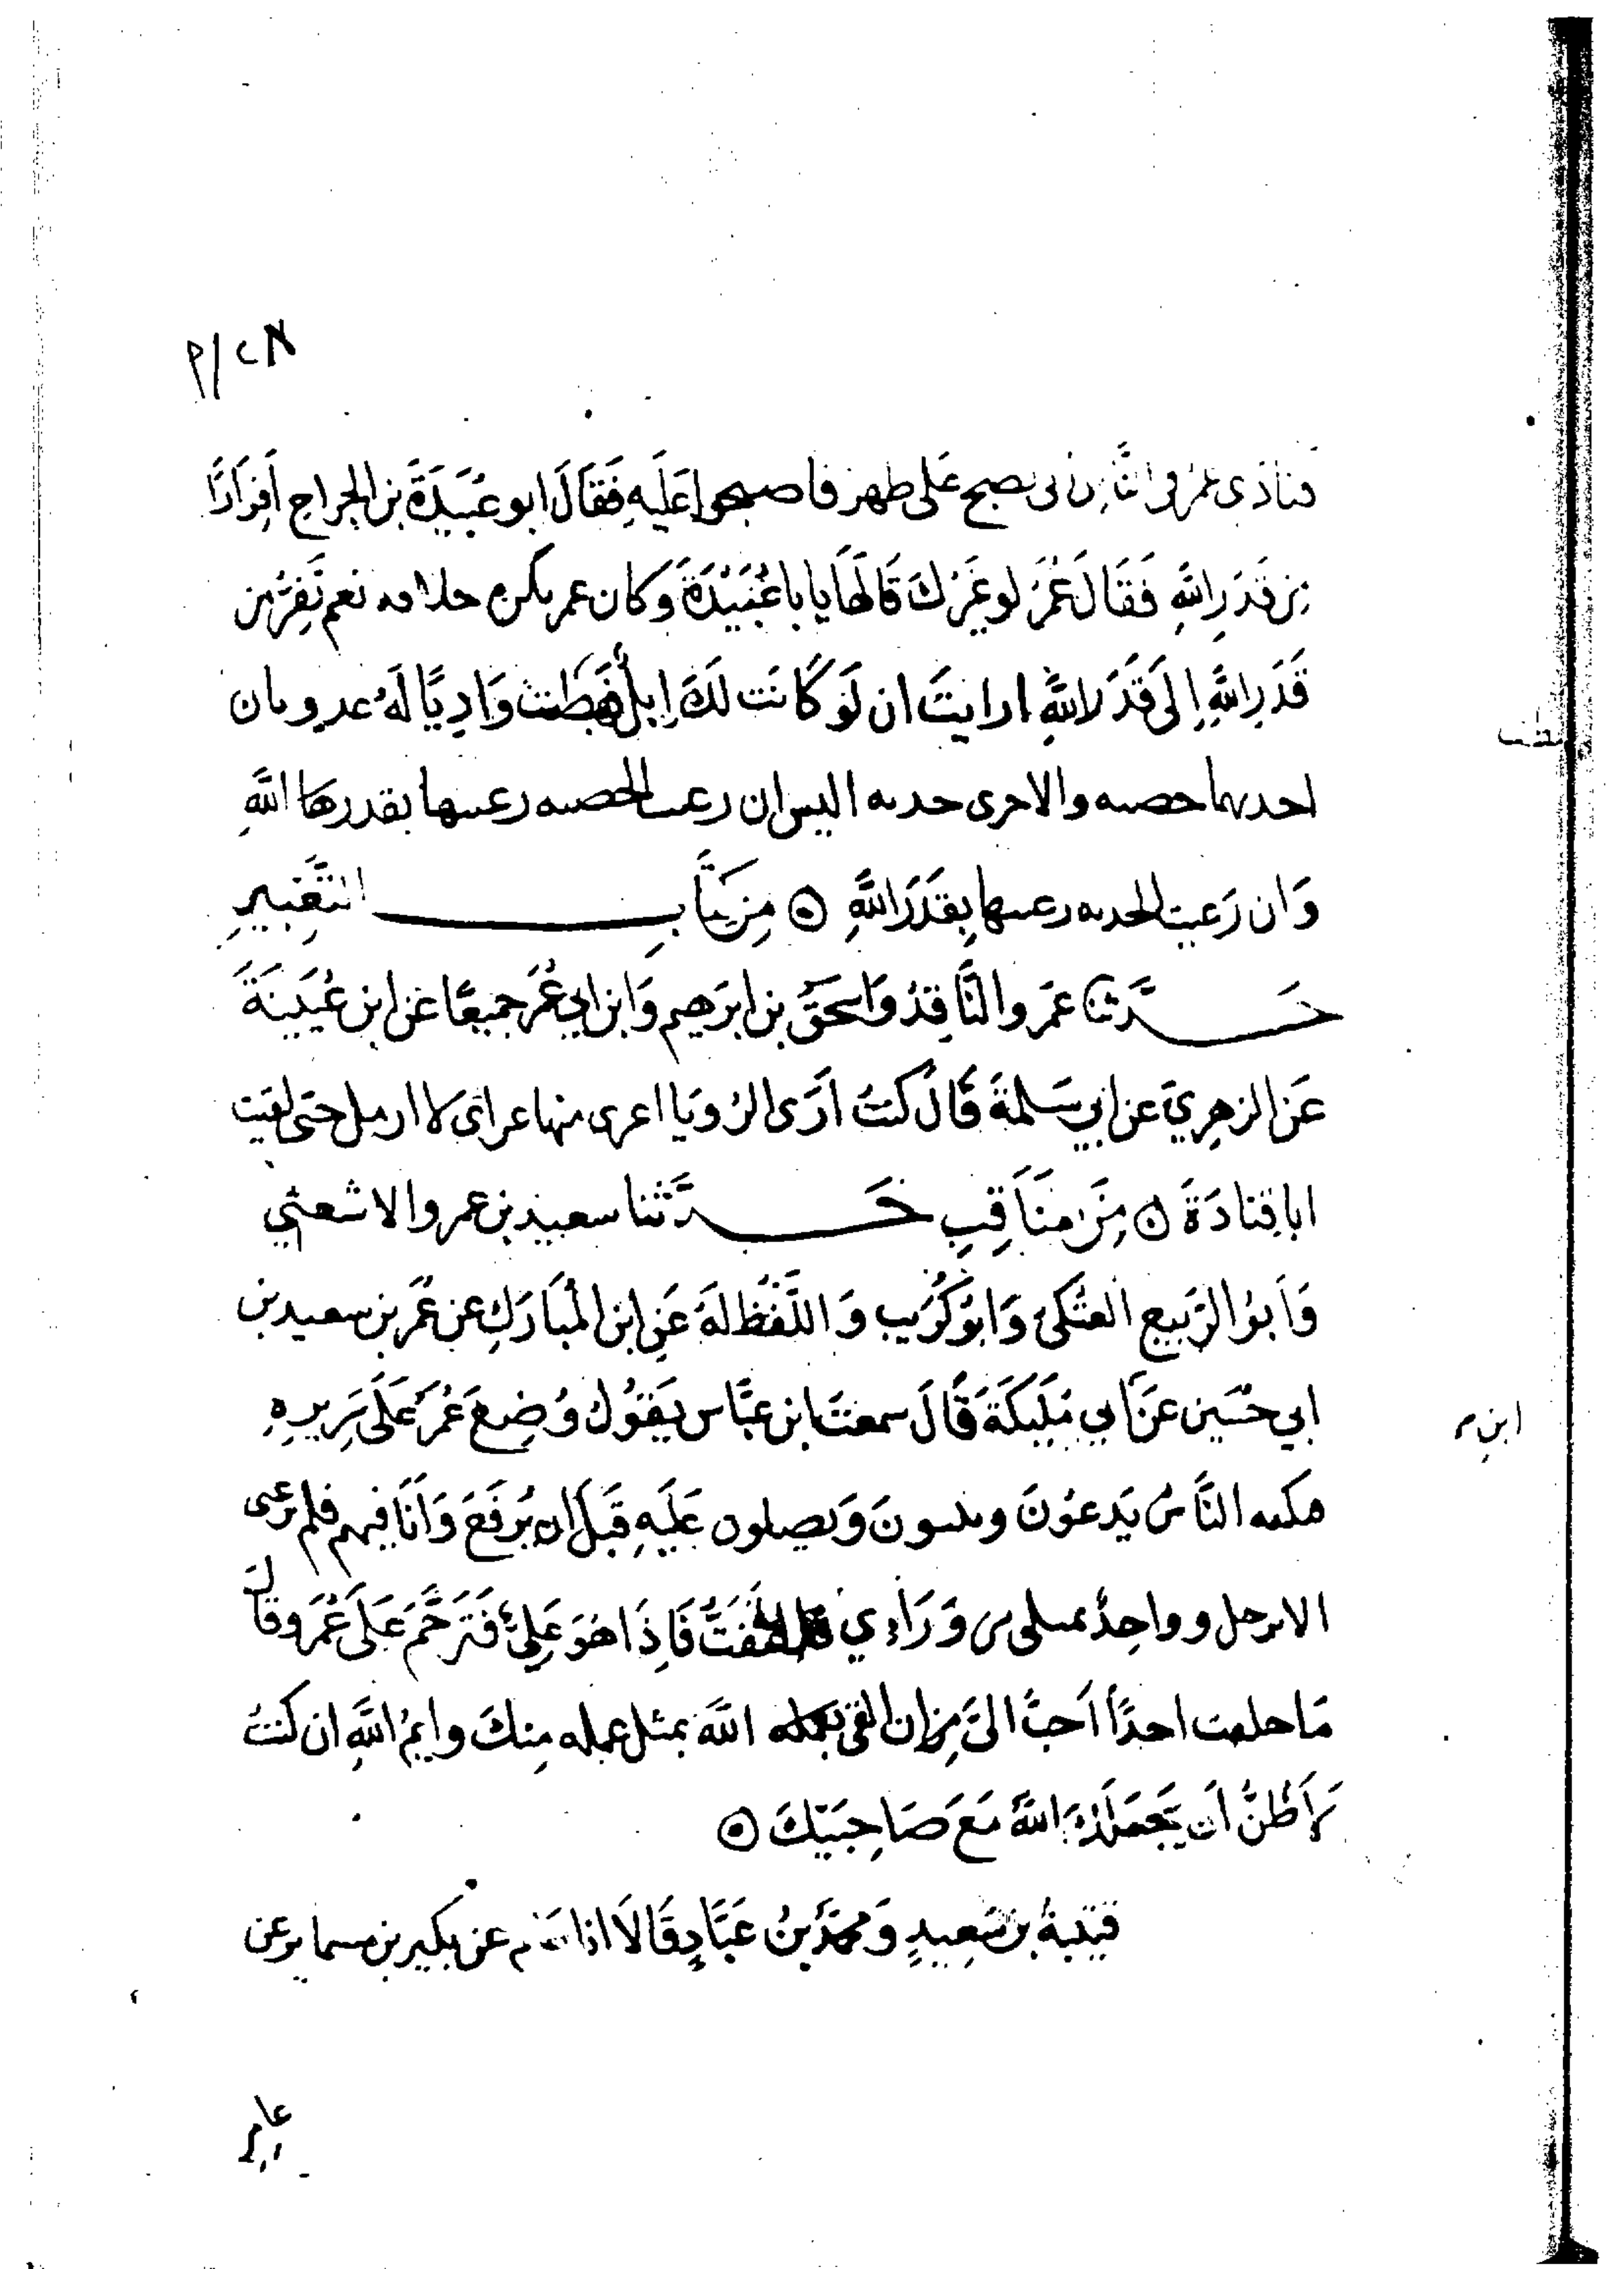 م/٢٨
فنادى عمر في الناس اني مصبح على ظهر فاصبحوا عليه فَقَالَ ابو عُبَيدَةَ بن الجراح اَفِرَارًا
مِن قَدَرِ اللَّهِ فَقَالَ عُمَرُ لو غَيرُكَ قَالَهَا يا با عُبَيْدَةَ وَكان عمر يكره خلافه نعم نَفِرُّ مِن
قَدَرِ اللَّهِ اِلَى قَدَرِ اللَّهِ ارايتَ ان لَو كَانَت لَكَ اِبِلٌ فهَبَطَت وَادِيًا لَهُ عدوتان
احديهما خصبه والاخرى جدبه اليس ان رعيت الخصبه رعيتها بقدر الله
وَان رَعيت الجدبه رعيتها بِقَدَرِ اللَّهِ ۞ مِن كِتَابِ التَّعْبِيرِ
حَدَّثنا عَمرو النَّاقِدُ وَاسحَقُ بن ابرَهِيم وَابن ابي عُمَر جميعًا عَن ابن عُيَينَةَ
عَن الزهرِيِّ عن ابي سَلمةَ قَالَ كنتُ اَرَى الرُّويَا اعرى منها غير اني لا ازمل حتى لقيت
ابا قتادَةَ ۞ مِن مَنَاقِبِ حَدَّثنا سعيد بن عمرو الاشعثي
وَاَبوُ الرَّبيعِ العَتَكي وَابوُ كُرَيبٍ وَاللَّفظ لَهَ عَنِ ابن المُبَارَكِ عن عُمَر بن سعيد بن
ابي حُسَين عَن ابي مُلَيكَةَ قَالَ سمعتَ ابن عبَّاس يَقوُل وُضِعَ عُمَرُ عَلَى سَرِيرِهِ
ابن م
فكنفه النَّاسُ يَدعوُنَ ويثنونَ وَيصلون عَلَيهِ قَبلَ ان يُرفَعَ وَاَنَا فيهم فلم يَرعني
الا برجل وواحِدٌ بمنكبي من وَرَاءِي فالتَفَتُّ فَاِذَا هُوَ عَلِيٌّ فَتَرَحَّمَ عَلَى عُمَرَ وقَالَ
مَا خلفت احدًا اَحَبَّ اليَّ مِن ان القى الله بمثل عمله مِنكَ وايمُ اللَّهِ ان كنتُ
لَاَظُنُّ اَن يَجعَلَكَ اللَّهُ مَعَ صَاحِبَيكَ ۞
قتيبةُ بن سَعِيدٍ وَمحمَّدُ بنُ عَبَّادٍ قَالَا انا حاتم عن بكير بن مسمار عن
عامر